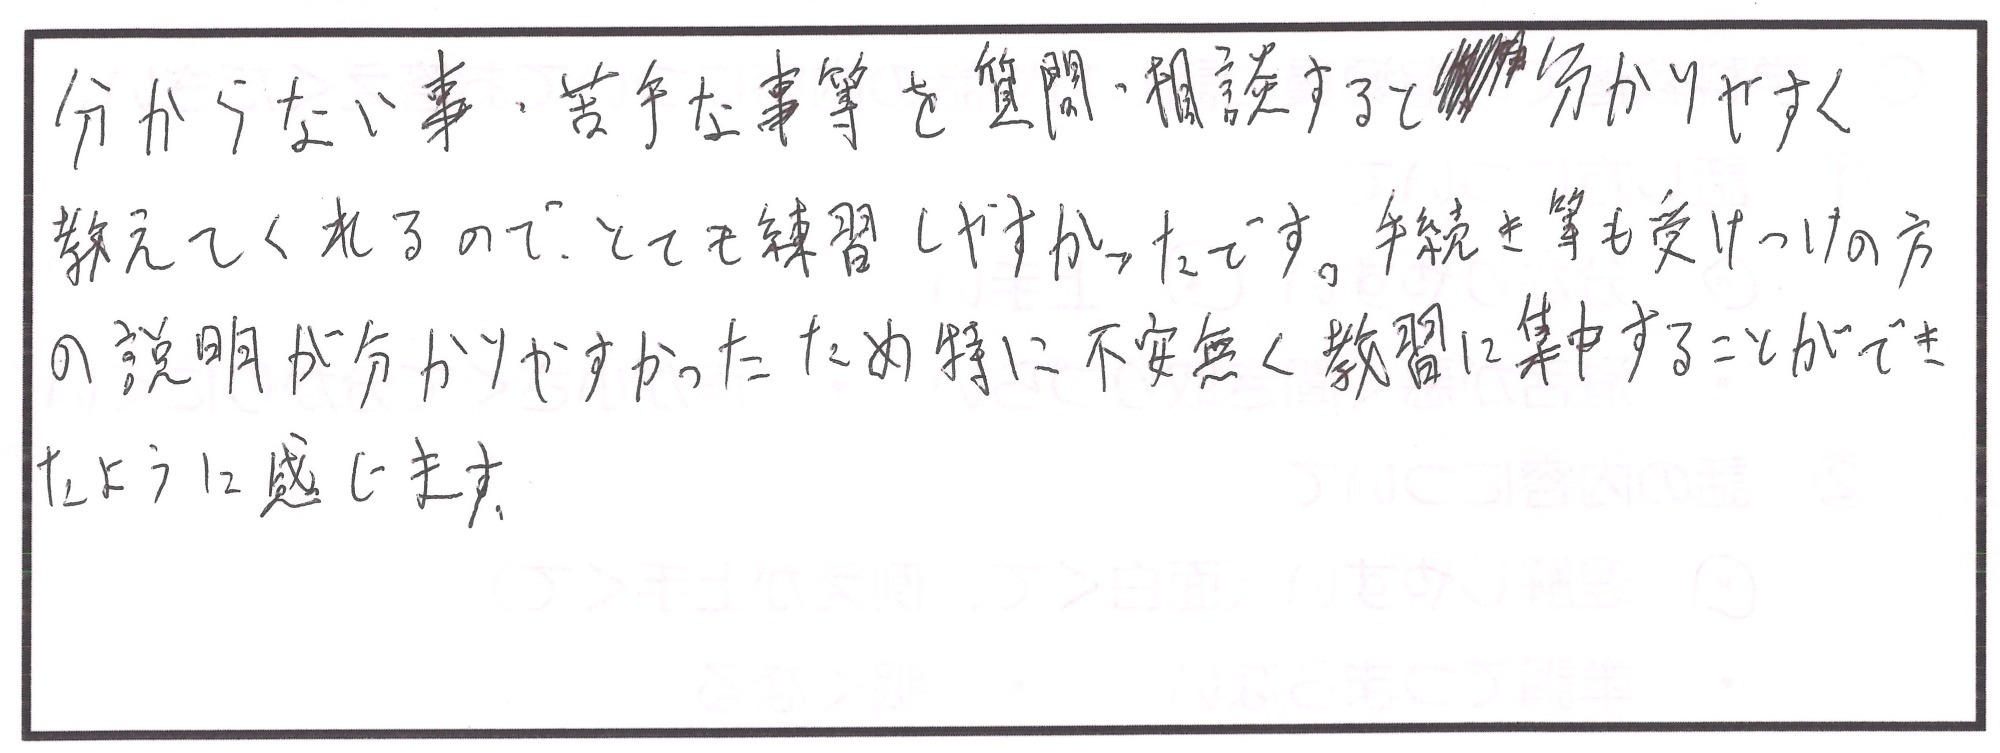 分からない事・苦手な事等を質問・相談すると分かりやすく
教えてくれるので、とても練習しやすかったです。手続き等も受けつけの方
の説明が分かりやすかったため特に不安無く教習に集中することができ
たように感じます。